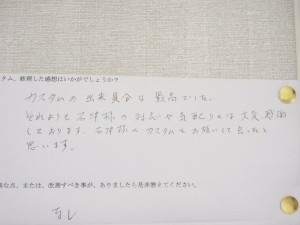 タム、修理した感想はいかがでしょうか?
カスタムの出来具合は最高でした。
それよりも石井様の対応や気配りには大変感謝
しております。石井様へカスタムをお願いして良かったと
思います。
な点、または、改善すべき事が、ありましたら是非教えてください。
なし